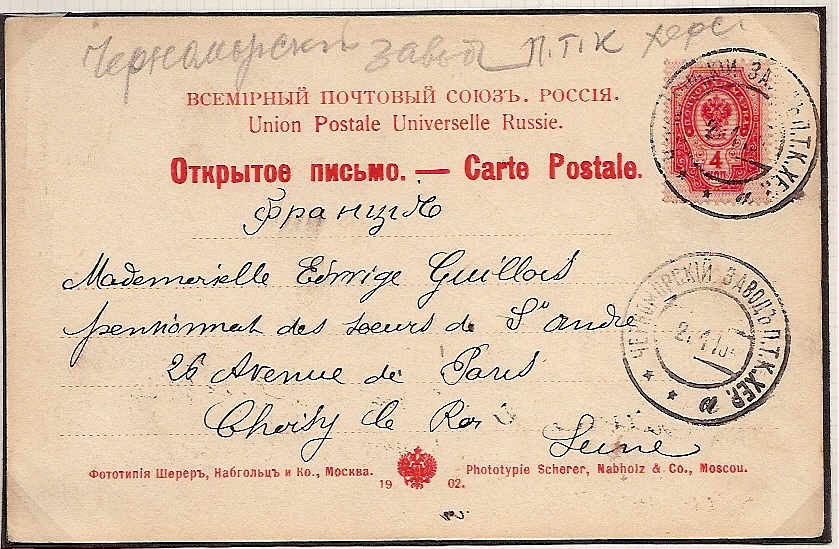 Черноморский завод П.Т.К Херс.
ВСЕМІРНЫЙ ПОЧТОВЫЙ СОЮЗЪ. РОССІЯ.
Union Postale Universelle Russie.
Открытое письмо. — Carte Postale.
4
Франція
Mademoiselle Edwige Guillois
pensionnat des soeurs de St André
26 Avenue de Paris
Choisy le Roi
Seine
ЧЕРНОМОРСКІЙ ЗАВОДЪ П.Т.К.ХЕР.
Фототипія Шереръ, Набгольцъ и Ко., Москва.
Phototypie Scherer, Nabholz & Co., Moscou.
19 02.